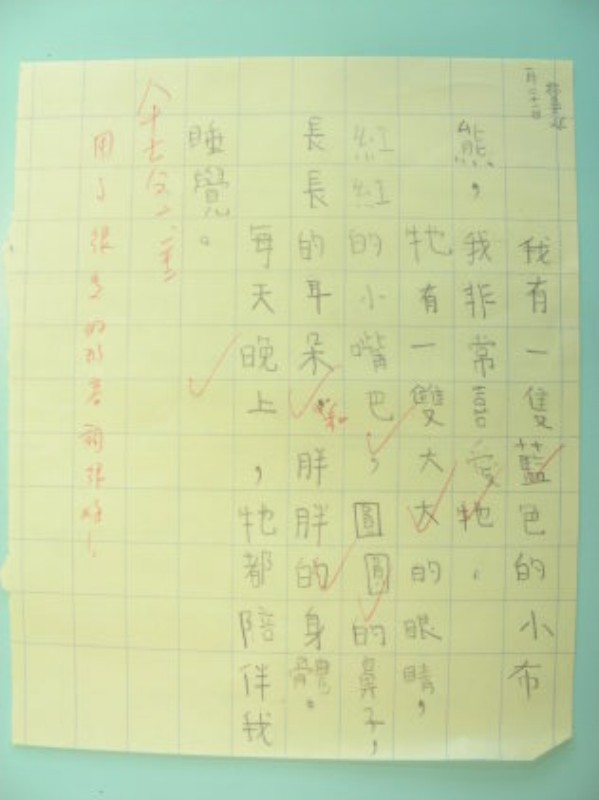 我有一隻藍色的小布
熊，我非常喜愛牠。
牠有一雙大大的眼睛，
紅紅的小嘴巴，圓圓的鼻子，
長長的耳朵和胖胖的身體。
每天晚上，牠都陪伴我
睡覺。
用了很多的形容詞